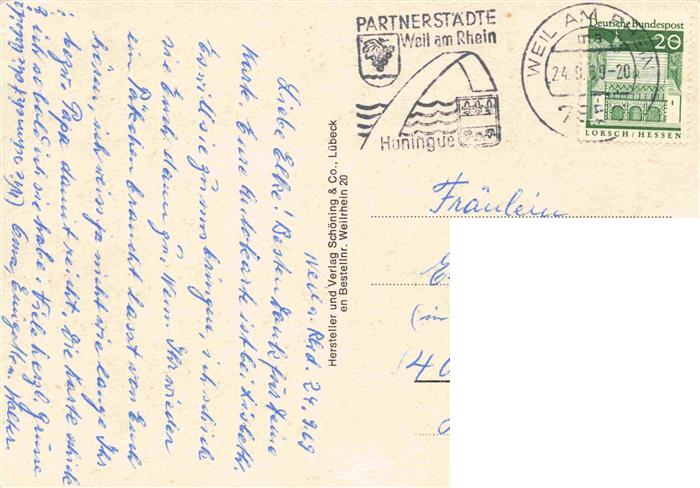 PARTNERSTÄDTE
Weil am Rhein
Huningue
WEIL AM RHEIN
24.9.69-20
795
Deutsche Bundespost
20
LORSCH/HESSEN
Fräulein
(in
(40
Hersteller und Verlag Schöning & Co., Lübeck
en Bestellnr. Weilrhein 20
Weil a. Rhd. 24.9.69
Liebe Elke! Besten Dank für Deine
Karte. Eure Autokarte ist bei Lisbeth.
Es will sie zu uns bringen, ich schick
sie Euch dann zu. Wenn Ihr wieder
ein Päckchen braucht lasst von Euch
hören, ich weiss ja nicht wie lange Ihr
bezw. Papa damit reicht. Die Karte schick
ich sobald ich sie habe. Viele herzl. Grüsse
Oma, Walter